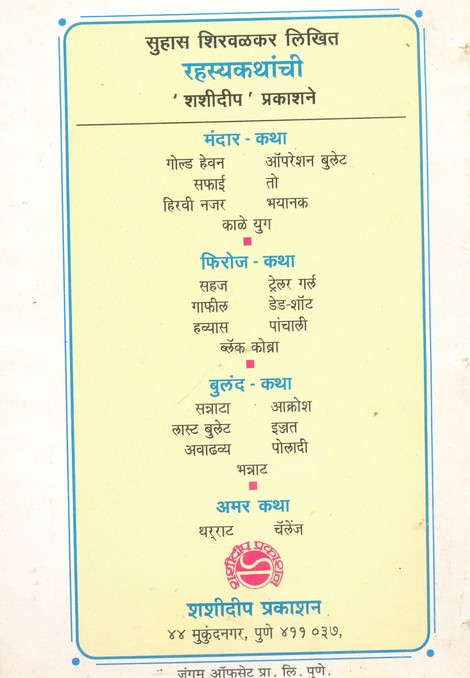 सुहास शिरवळकर लिखित
रहस्यकथांची
' शशीदीप ' प्रकाशने
मंदार - कथा
गोल्ड हेवन ऑपरेशन बुलेट
सफाई तो
हिरवी नजर भयानक
काळे युग
फिरोज - कथा
सहज ट्रेलर गर्ल
गाफील डेड-शॉट
हव्यास पांचाली
ब्लॅक कोब्रा
बुलंद - कथा
सन्नाटा आक्रोश
लास्ट बुलेट इज्जत
अवाढव्य पोलादी
भन्नाट
अमर कथा
थर्राट चॅलेंज
शशीदीप प्रकाशन
शशीदीप प्रकाशन
४४ मुकुंदनगर, पुणे ४११ ०३७,
जंगम ऑफसेट प्रा. लि. पुणे.